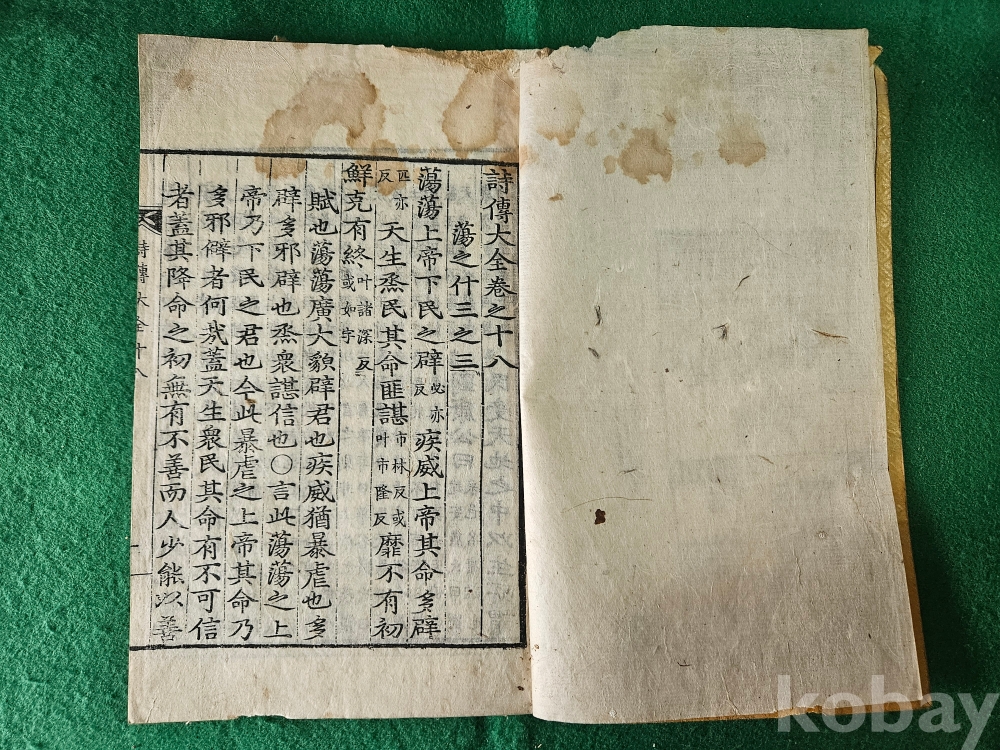 詩傳大全卷之十八
蕩之什三之三
蕩蕩上帝下民之辟必亦反疾威上帝其命多辟
匹亦反天生烝民其命匪諶市林反或叶市隆反靡不有初
鮮克有終叶諸深反或如字
賦也蕩蕩廣大貌辟君也疾威猶暴虐也多
辟多邪辟也烝衆諶信也○言此蕩蕩之上
帝乃下民之君也今此暴虐之上帝其命乃
多邪僻者何㢤蓋天生衆民其命有不可信
者蓋其降命之初無有不善而人少能以善
詩傳大全十八
一
kobay